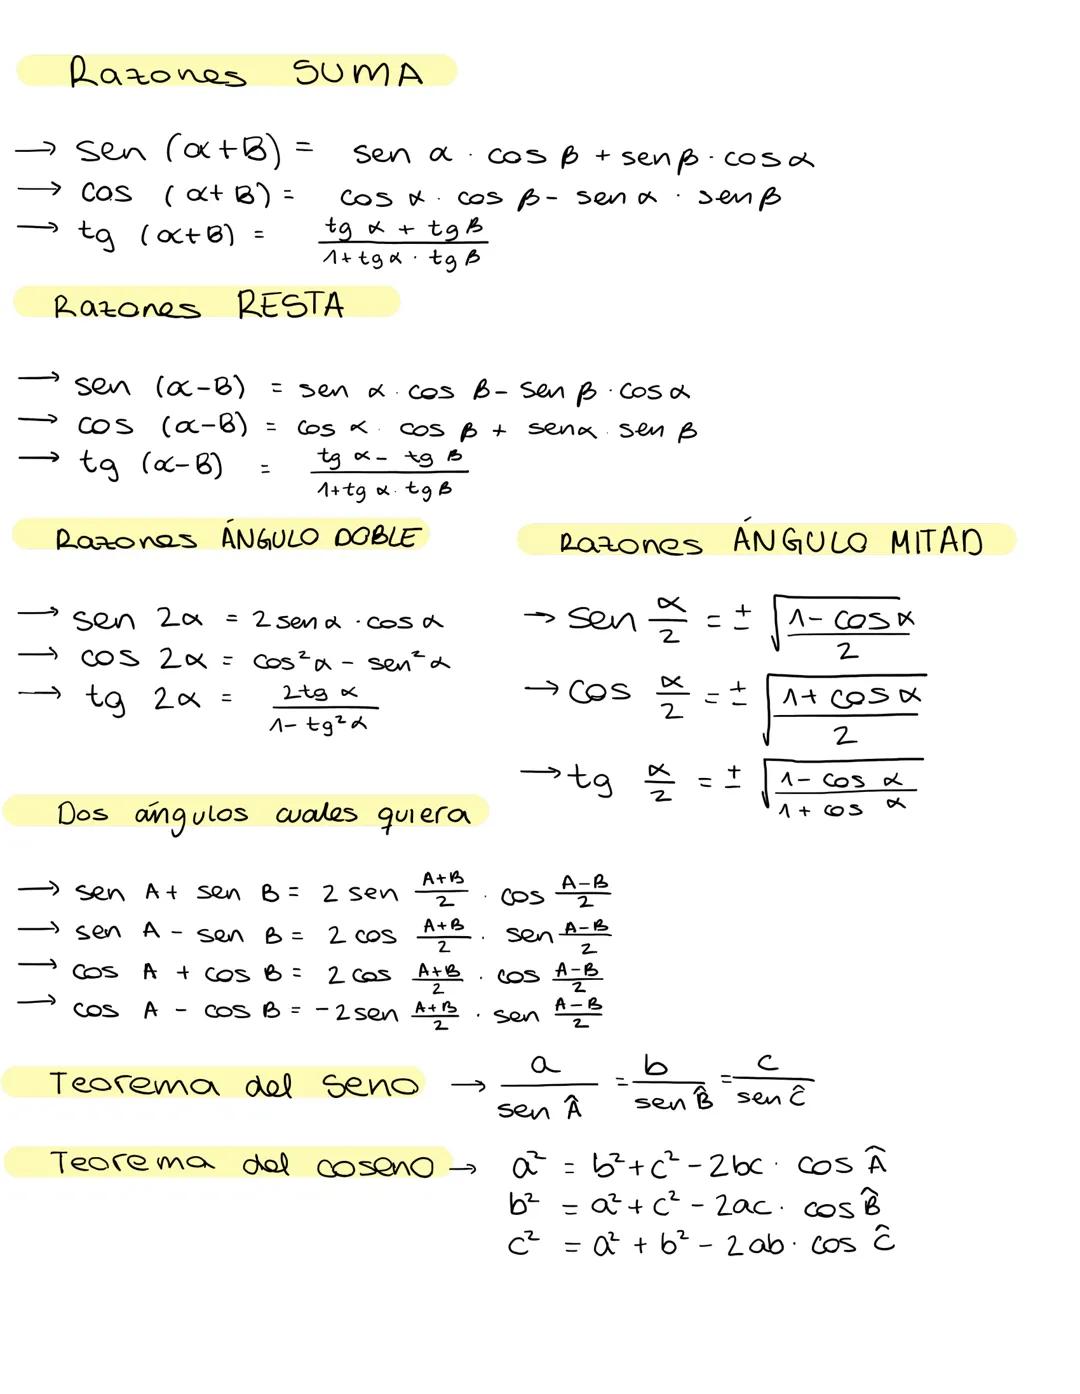 Razones SUMA
→ sen (α+B) = sen α · cos β + sen β · cos α
→ cos (α+B) = cos α · cos β - sen α · sen β
→ tg (α+B) = tg α + tg B / 1+ tg α · tg B
Razones RESTA
→ sen (α-B) = sen α · cos B - sen β · cos α
→ cos (α-B) = cos α · cos β + sen α · sen β
→ tg (α-B) = tg α - tg B / 1+tg α · tg B
Razones ÁNGULO DOBLE
→ sen 2α = 2 sen α · cos α
→ cos 2α = cos²α - sen²α
→ tg 2α = 2tg α / 1- tg²α
Razones ÁNGULO MITAD
→ sen α/2 = ± √(1- cos α / 2)
→ cos α/2 = ± √(1+ cos α / 2)
→ tg α/2 = ± √(1- cos α / 1+ cos α)
Dos ángulos cuales quiera
→ sen A + sen B = 2 sen A+B/2 · cos A-B/2
→ sen A - sen B = 2 cos A+B/2 · sen A-B/2
→ cos A + cos B = 2 cos A+B/2 · cos A-B/2
→ cos A - cos B = -2 sen A+B/2 · sen A-B/2
Teorema del seno → a / sen Â = b / sen B̂ = c / sen Ĉ
Teorema del coseno → a² = b²+c² - 2bc · cos Â
b² = a²+ c² - 2ac · cos B̂
c² = a² + b² - 2ab · cos Ĉ